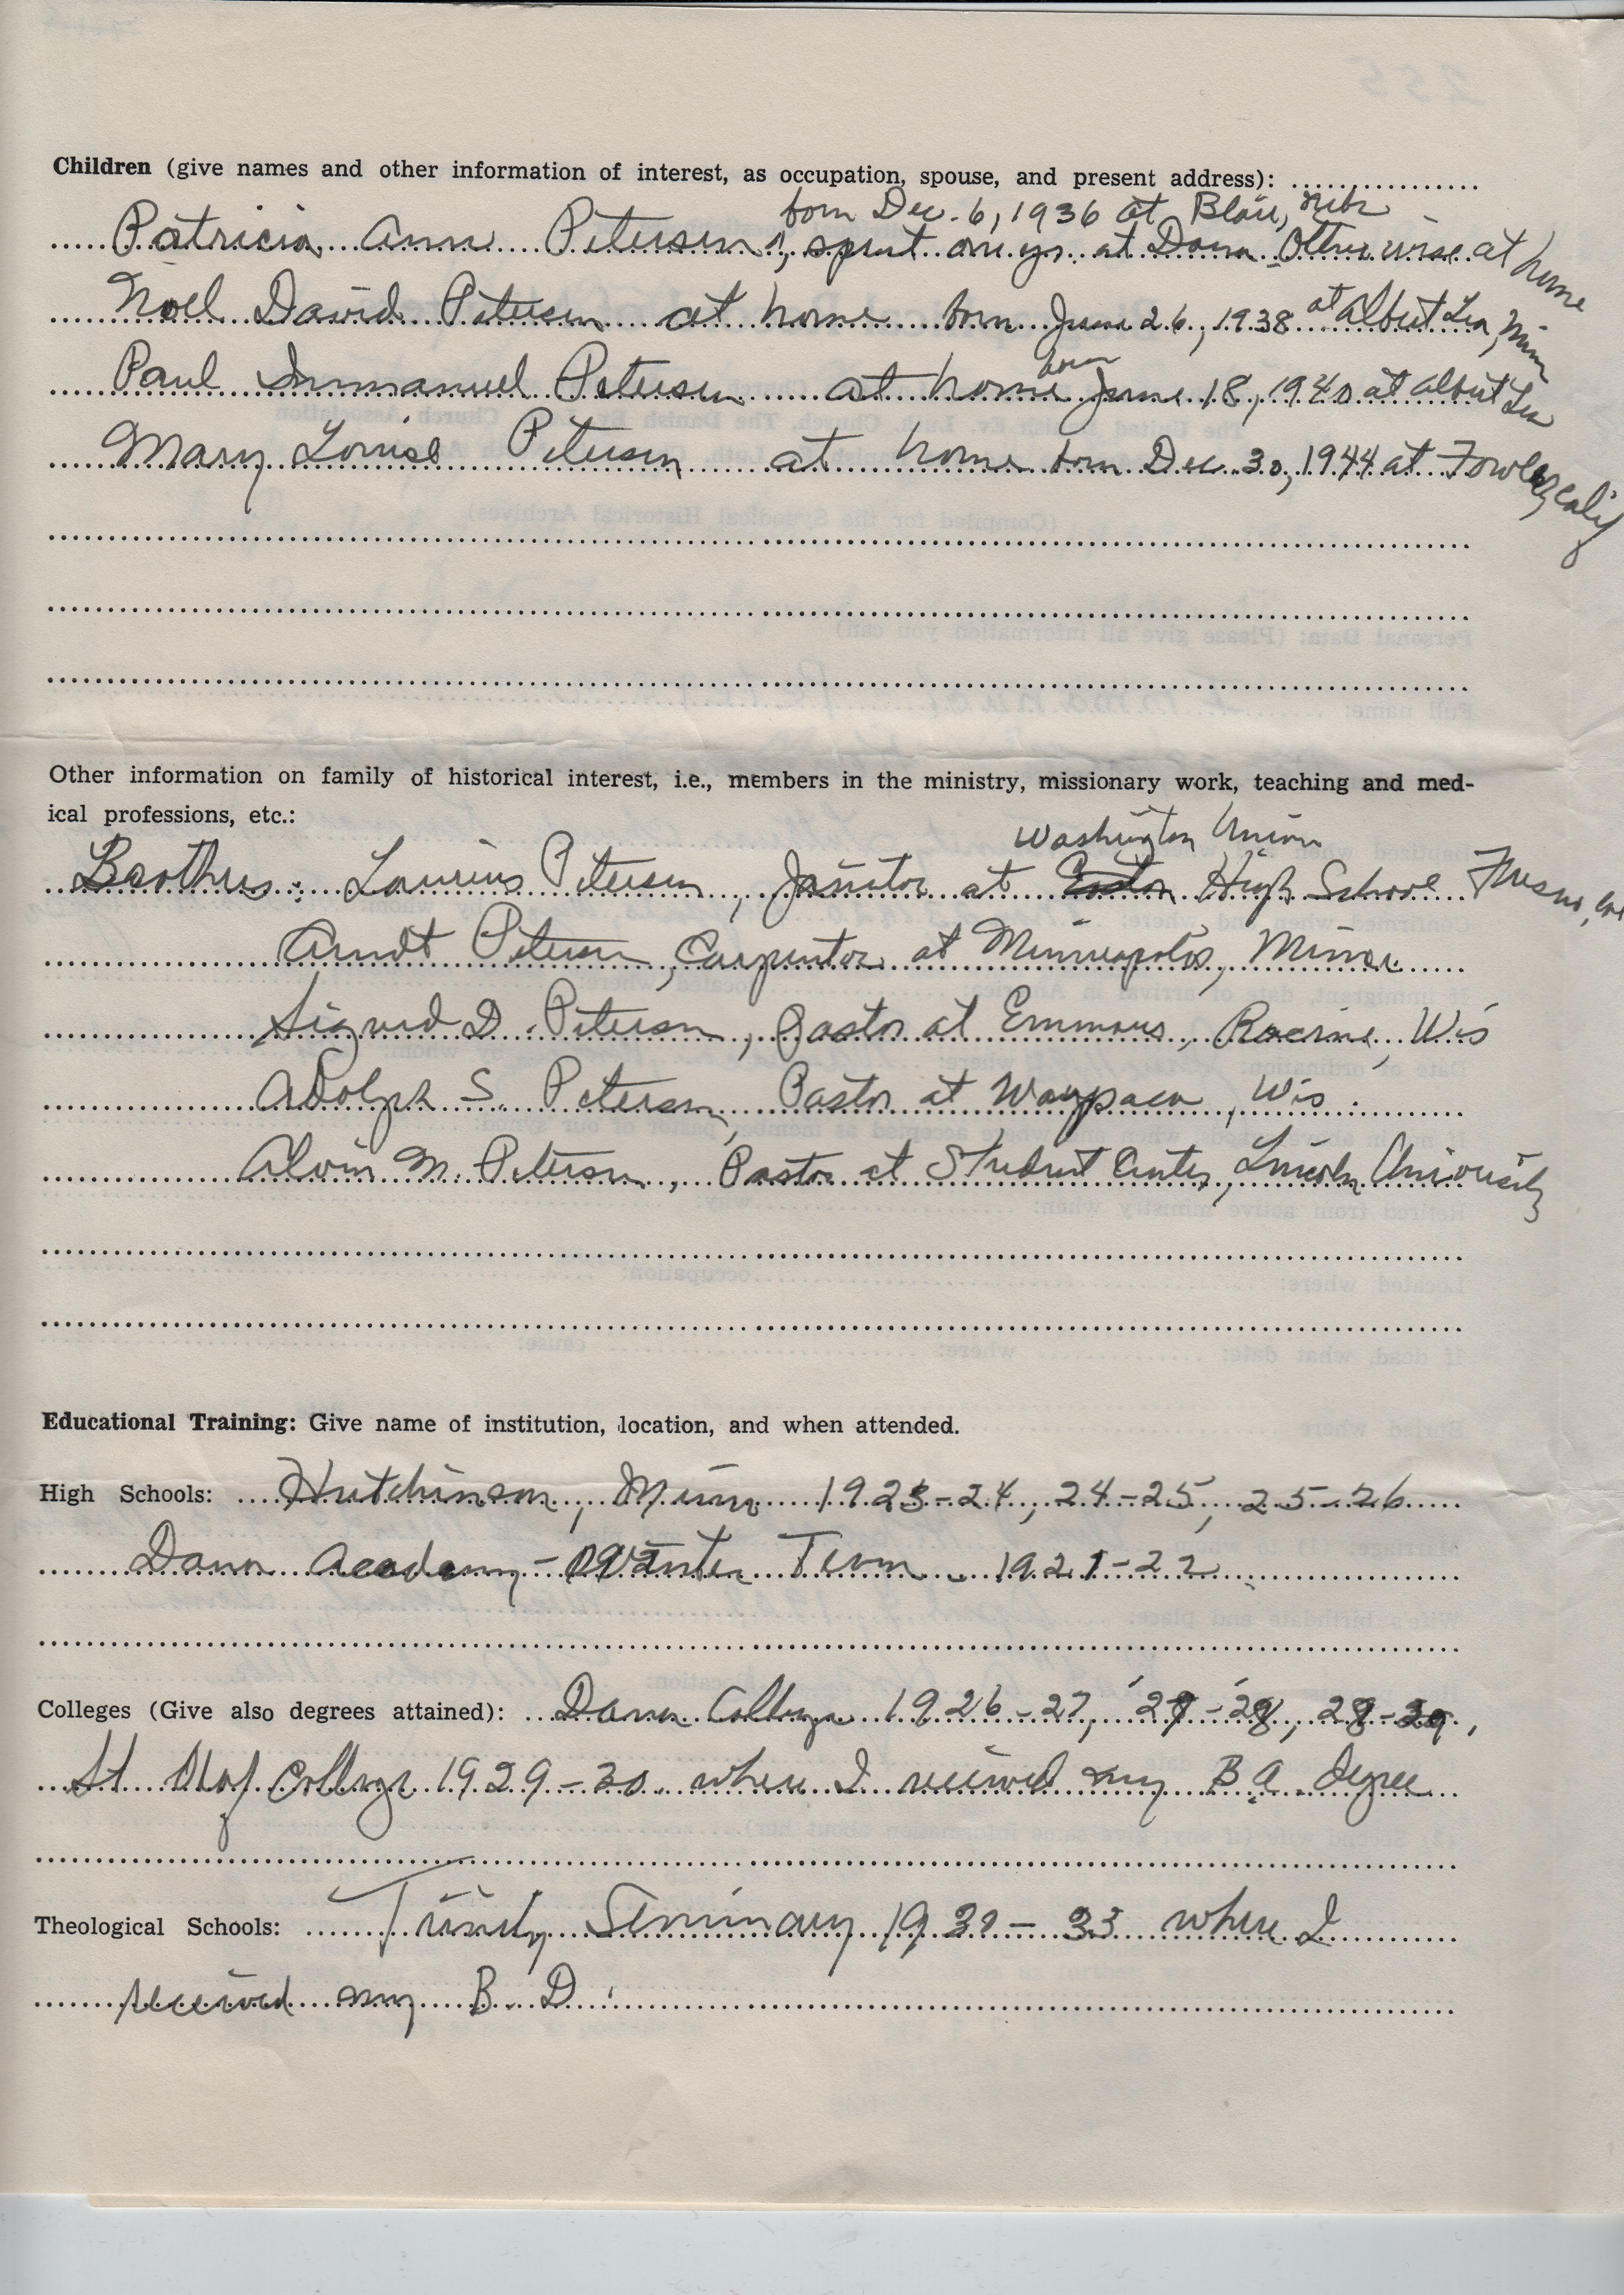 Children (give names and other information of interest, as occupation, spouse, and present address):
born Dec. 6, 1936 at Blair, Nebr
Patricia Ann Petersen, spent one yr. at Dana Otherwise at home
Noel David Petersen at home born June 26, 1938 at Albert Lea, Minn
Paul Immanuel Petersen at home born June 18, 1940 at Albert Lea
Mary Louise Petersen at home born Dec 30, 1944 at Fowler, Calif
Other information on family of historical interest, i.e., members in the ministry, missionary work, teaching and med-
ical professions, etc.:
Washington Union
Brothers: Laurius Petersen, Janitor at Easton High School Fresno, Cal
Arndt Petersen, Carpenter at Minneapolis, Minn.
Sigurd D. Petersen, Pastor at Emmaus, Racine, Wis
Adolph S. Petersen, Pastor at Waupaca, Wis.
Alvin M. Petersen, Pastor at Student Center, Lincoln University
Educational Training: Give name of institution, location, and when attended.
High Schools: Hutchinson, Minn 1923-24, 24-25, 25-26
Dana Academy - Winter Term 1921-22
Colleges (Give also degrees attained): Dana College 1926-27, '27-'28, 28-29,
St. Olaf College 1929-30 where I received my B.A. degree
Theological Schools: Trinity Seminary 1930-33 where I
received my B.D.